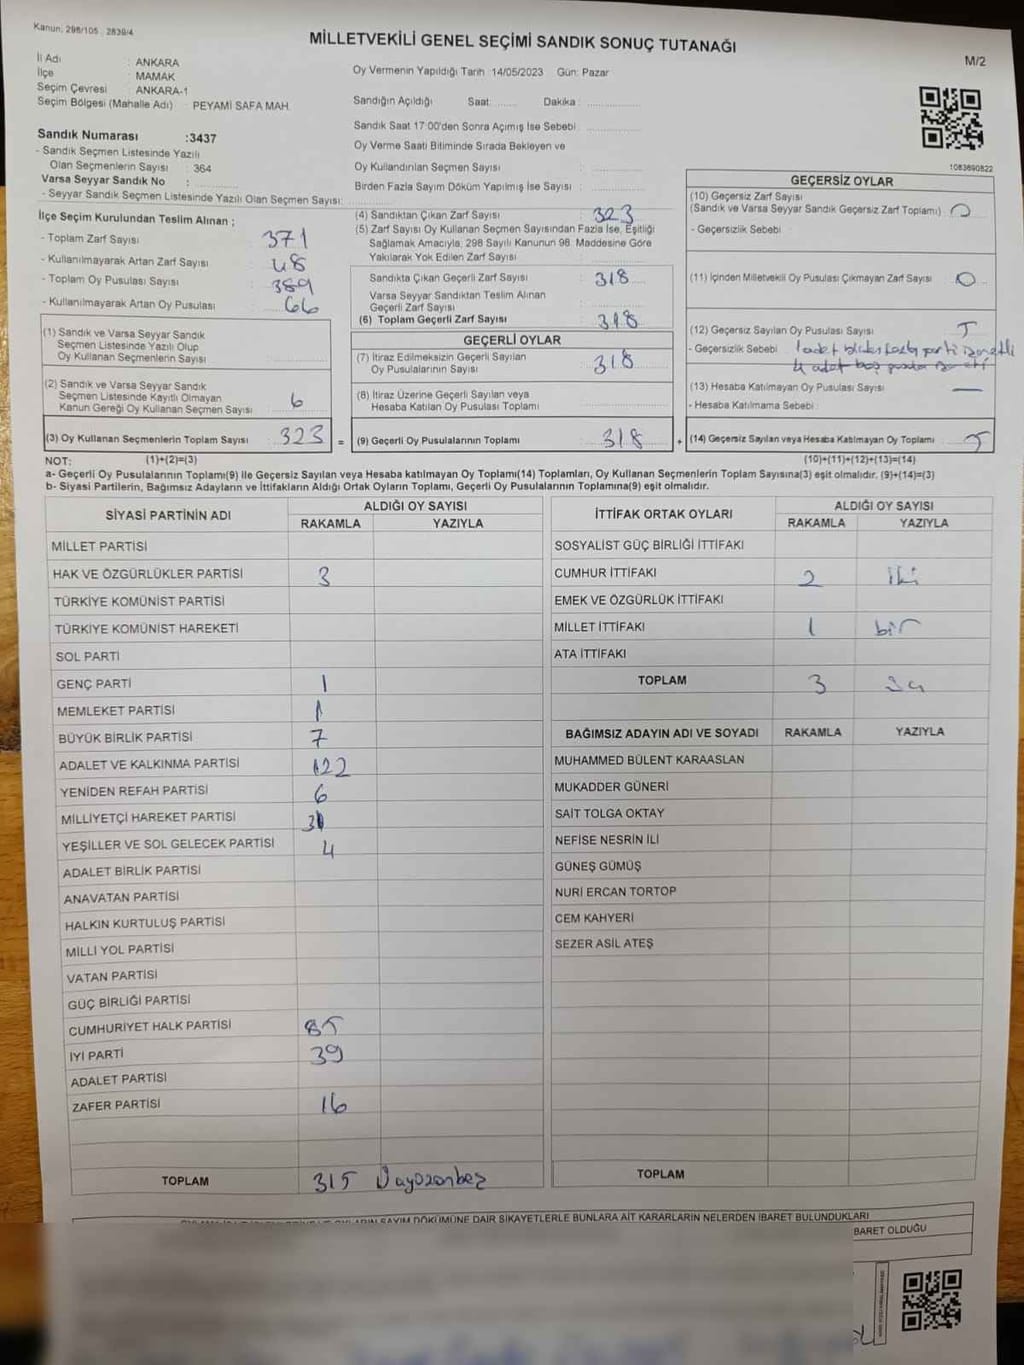 Kanun: 298/105, 2839/4
MİLLETVEKİLİ GENEL SEÇİMİ SANDIK SONUÇ TUTANAĞI
M/2
İl Adı : ANKARA
İlçe : MAMAK
Seçim Çevresi : ANKARA-1
Seçim Bölgesi (Mahalle Adı) : PEYAMİ SAFA MAH.
Sandık Numarası :3437
- Sandık Seçmen Listesinde Yazılı
Olan Seçmenlerin Sayısı : 364
Varsa Seyyar Sandık No :
- Seyyar Sandık Seçmen Listesinde Yazılı Olan Seçmen Sayısı:
Oy Vermenin Yapıldığı Tarih :14/05/2023 Gün: Pazar
Sandığın Açıldığı Saat: Dakika :
Sandık Saat 17:00'den Sonra Açımış İse Sebebi :
Oy Verme Saati Bitiminde Sırada Bekleyen ve
Oy Kullandırılan Seçmen Sayısı :
Birden Fazla Sayım Döküm Yapılmış İse Sayısı :
1083690822
İlçe Seçim Kurulundan Teslim Alınan ;
- Toplam Zarf Sayısı 371
- Kullanılmayarak Artan Zarf Sayısı 48
- Toplam Oy Pusulası Sayısı 389
- Kullanılmayarak Artan Oy Pusulası 66
(1) Sandık ve Varsa Seyyar Sandık
Seçmen Listesinde Yazılı Olup
Oy Kullanan Seçmenlerin Sayısı
(2) Sandık ve Varsa Seyyar Sandık
Seçmen Listesinde Kayıtlı Olmayan
Kanun Gereği Oy Kullanan Seçmen Sayısı 6
(3) Oy Kullanan Seçmenlerin Toplam Sayısı 323 =
(1)+(2)=(3)
(4) Sandıktan Çıkan Zarf Sayısı : 323
(5) Zarf Sayısı Oy Kullanan Seçmen Sayısından Fazla İse, Eşitliği
Sağlamak Amacıyla, 298 Sayılı Kanunun 98. Maddesine Göre
Yakılarak Yok Edilen Zarf Sayısı :
Sandıkta Çıkan Geçerli Zarf Sayısı : 318
Varsa Seyyar Sandıktan Teslim Alınan
Geçerli Zarf Sayısı
(6) Toplam Geçerli Zarf Sayısı : 318
GEÇERLİ OYLAR
(7) İtiraz Edilmeksizin Geçerli Sayılan
Oy Pusulalarının Sayısı : 318
(8) İtiraz Üzerine Geçerli Sayılan veya
Hesaba Katılan Oy Pusulası Toplamı :
(9) Geçerli Oy Pusulalarının Toplamı 318 +
GEÇERSİZ OYLAR
(10) Geçersiz Zarf Sayısı
(Sandık ve Varsa Seyyar Sandık Geçersiz Zarf Toplamı) : 0
- Geçersizlik Sebebi :
(11) İçinden Milletvekili Oy Pusulası Çıkmayan Zarf Sayısı : 0
(12) Geçersiz Sayılan Oy Pusulası Sayısı : 5
- Geçersizlik Sebebi : 1 adet birden fazla parti işaretli
4 adet boş pusula
(13) Hesaba Katılmayan Oy Pusulası Sayısı : —
- Hesaba Katılmama Sebebi :
(14) Geçersiz Sayılan veya Hesaba Katılmayan Oy Toplamı : 5
(10)+(11)+(12)+(13)=(14)
NOT:
a- Geçerli Oy Pusulalarının Toplamı(9) ile Geçersiz Sayılan veya Hesaba katılmayan Oy Toplamı(14) Toplamları, Oy Kullanan Seçmenlerin Toplam Sayısına(3) eşit olmalıdır. (9)+(14)=(3)
b- Siyasi Partilerin, Bağımsız Adayların ve İttifakların Aldığı Ortak Oyların Toplamı, Geçerli Oy Pusulalarının Toplamına(9) eşit olmalıdır.
SİYASİ PARTİNİN ADI
ALDIĞI OY SAYISI
RAKAMLA YAZIYLA
MİLLET PARTİSİ
HAK VE ÖZGÜRLÜKLER PARTİSİ 3
TÜRKİYE KOMÜNİST PARTİSİ
TÜRKİYE KOMÜNİST HAREKETİ
SOL PARTİ
GENÇ PARTİ 1
MEMLEKET PARTİSİ 1
BÜYÜK BİRLİK PARTİSİ 7
ADALET VE KALKINMA PARTİSİ 122
YENİDEN REFAH PARTİSİ 6
MİLLİYETÇİ HAREKET PARTİSİ 31
YEŞİLLER VE SOL GELECEK PARTİSİ 4
ADALET BİRLİK PARTİSİ
ANAVATAN PARTİSİ
HALKIN KURTULUŞ PARTİSİ
MİLLİ YOL PARTİSİ
VATAN PARTİSİ
GÜÇ BİRLİĞİ PARTİSİ
CUMHURİYET HALK PARTİSİ 85
İYİ PARTİ 39
ADALET PARTİSİ
ZAFER PARTİSİ 16
TOPLAM 315 Üçyüzonbeş
İTTİFAK ORTAK OYLARI
ALDIĞI OY SAYISI
RAKAMLA YAZIYLA
SOSYALİST GÜÇ BİRLİĞİ İTTİFAKI
CUMHUR İTTİFAKI 2 iki
EMEK VE ÖZGÜRLÜK İTTİFAKI
MİLLET İTTİFAKI 1 bir
ATA İTTİFAKI
TOPLAM 3 üç
BAĞIMSIZ ADAYIN ADI VE SOYADI RAKAMLA YAZIYLA
MUHAMMED BÜLENT KARAASLAN
MUKADDER GÜNERİ
SAİT TOLGA OKTAY
NEFİSE NESRİN İLİ
GÜNEŞ GÜMÜŞ
NURİ ERCAN TORTOP
CEM KAHYERİ
SEZER ASİL ATEŞ
TOPLAM
SAYIM DÖKÜMÜNE DAİR ŞİKAYETLERLE BUNLARA AİT KARARLARIN NELERDEN İBARET BULUNDUKLARI
BARET OLDUĞU